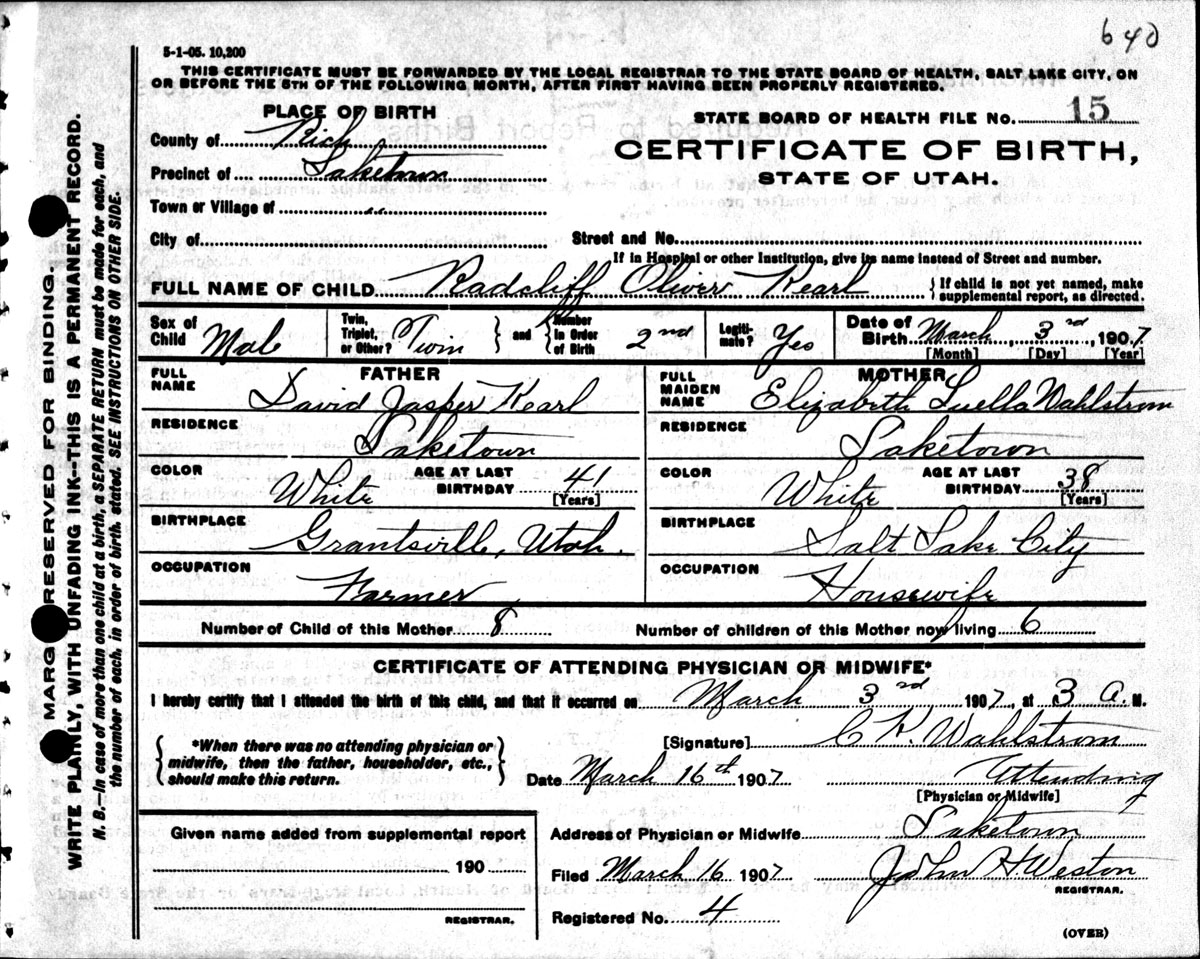 640
5-1-05. 10,200
THIS CERTIFICATE MUST BE FORWARDED BY THE LOCAL REGISTRAR TO THE STATE BOARD OF HEALTH, SALT LAKE CITY, ON
OR BEFORE THE 5TH OF THE FOLLOWING MONTH, AFTER FIRST HAVING BEEN PROPERLY REGISTERED.
PLACE OF BIRTH
STATE BOARD OF HEALTH FILE NO. 15
County of Rich
CERTIFICATE OF BIRTH,
Precinct of Laketown
STATE OF UTAH.
Town or Village of "
City of
Street and No.
If in Hospital or other Institution, give its name instead of Street and number.
FULL NAME OF CHILD Radcliff Oliver Kearl
{If child is not yet named, make
supplemental report, as directed.
Sex of Child Male
Twin, Triplet, or Other? Twin
} and {
Number in Order of Birth 2nd
Legitimate? Yes
Date of Birth March 3rd, 1907
[Month] [Day] [Year]
FATHER
FULL NAME David Jasper Kearl
RESIDENCE Laketown
COLOR White
AGE AT LAST BIRTHDAY 41
[Years]
BIRTHPLACE Grantsville, Utah.
OCCUPATION Farmer
MOTHER
FULL MAIDEN NAME Elizabeth Luella Wahlstrom
RESIDENCE Laketown
COLOR White
AGE AT LAST BIRTHDAY 38
[Years]
BIRTHPLACE Salt Lake City
OCCUPATION Housewife
Number of Child of this Mother 8
Number of children of this Mother now living 6
CERTIFICATE OF ATTENDING PHYSICIAN OR MIDWIFE*
I hereby certify that I attended the birth of this child, and that it occurred on March 3rd 1907, at 3 A. M.
{*When there was no attending physician or
midwife, then the father, householder, etc.,
should make this return.}
[Signature] C K. Wahlstrom
Date March 16th 1907
Attending
[Physician or Midwife]
Given name added from supplemental report
190
REGISTRAR.
Address of Physician or Midwife Laketown
Filed March 16 1907
John H. Weston
REGISTRAR.
Registered No. 4
(OVER)
MARG RESERVED FOR BINDING.
WRITE PLAINLY, WITH UNFADING INK--THIS IS A PERMANENT RECORD.
N. B.--In case of more than one child at a birth, a SEPARATE RETURN must be made for each, and
the number of each, in order of birth, stated. SEE INSTRUCTIONS ON OTHER SIDE.